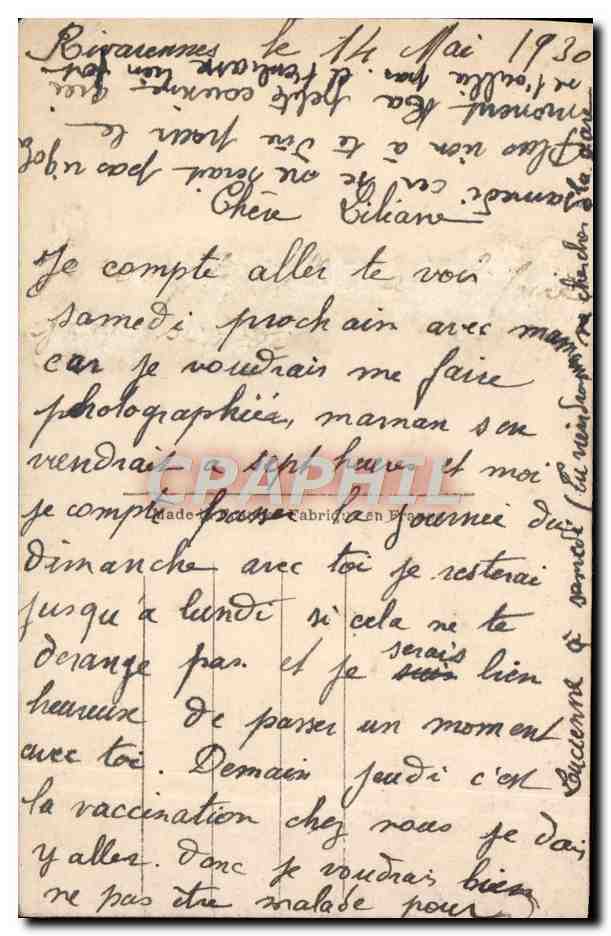 Rivarennes le 14 Mai 1930
Chère Liliane
Je compte aller te voir
samedi prochain avec maman
car je voudrais me faire
photographiée, maman s'en
viendrait a sept heures et moi
je compte passer la journée du
dimanche avec toi je resterai
jusqu'a lundi si cela ne te
derange pas. et je serais bien
heureux de passer un moment
avec toi. Demain jeudi c'est
la vaccination chez nous je dois
y aller. donc je voudrais bien
ne pas être malade pour
samedi car ce ne serait pas rigolo
Plus rien à te dire pour le
moment ta petite cousine qui
ne t'oublie pas et t'embrasse bien fort
Lucienne à samedi (Tu viendras me chercher à la gare
CPARAMA
Made in France Fabriqué en France